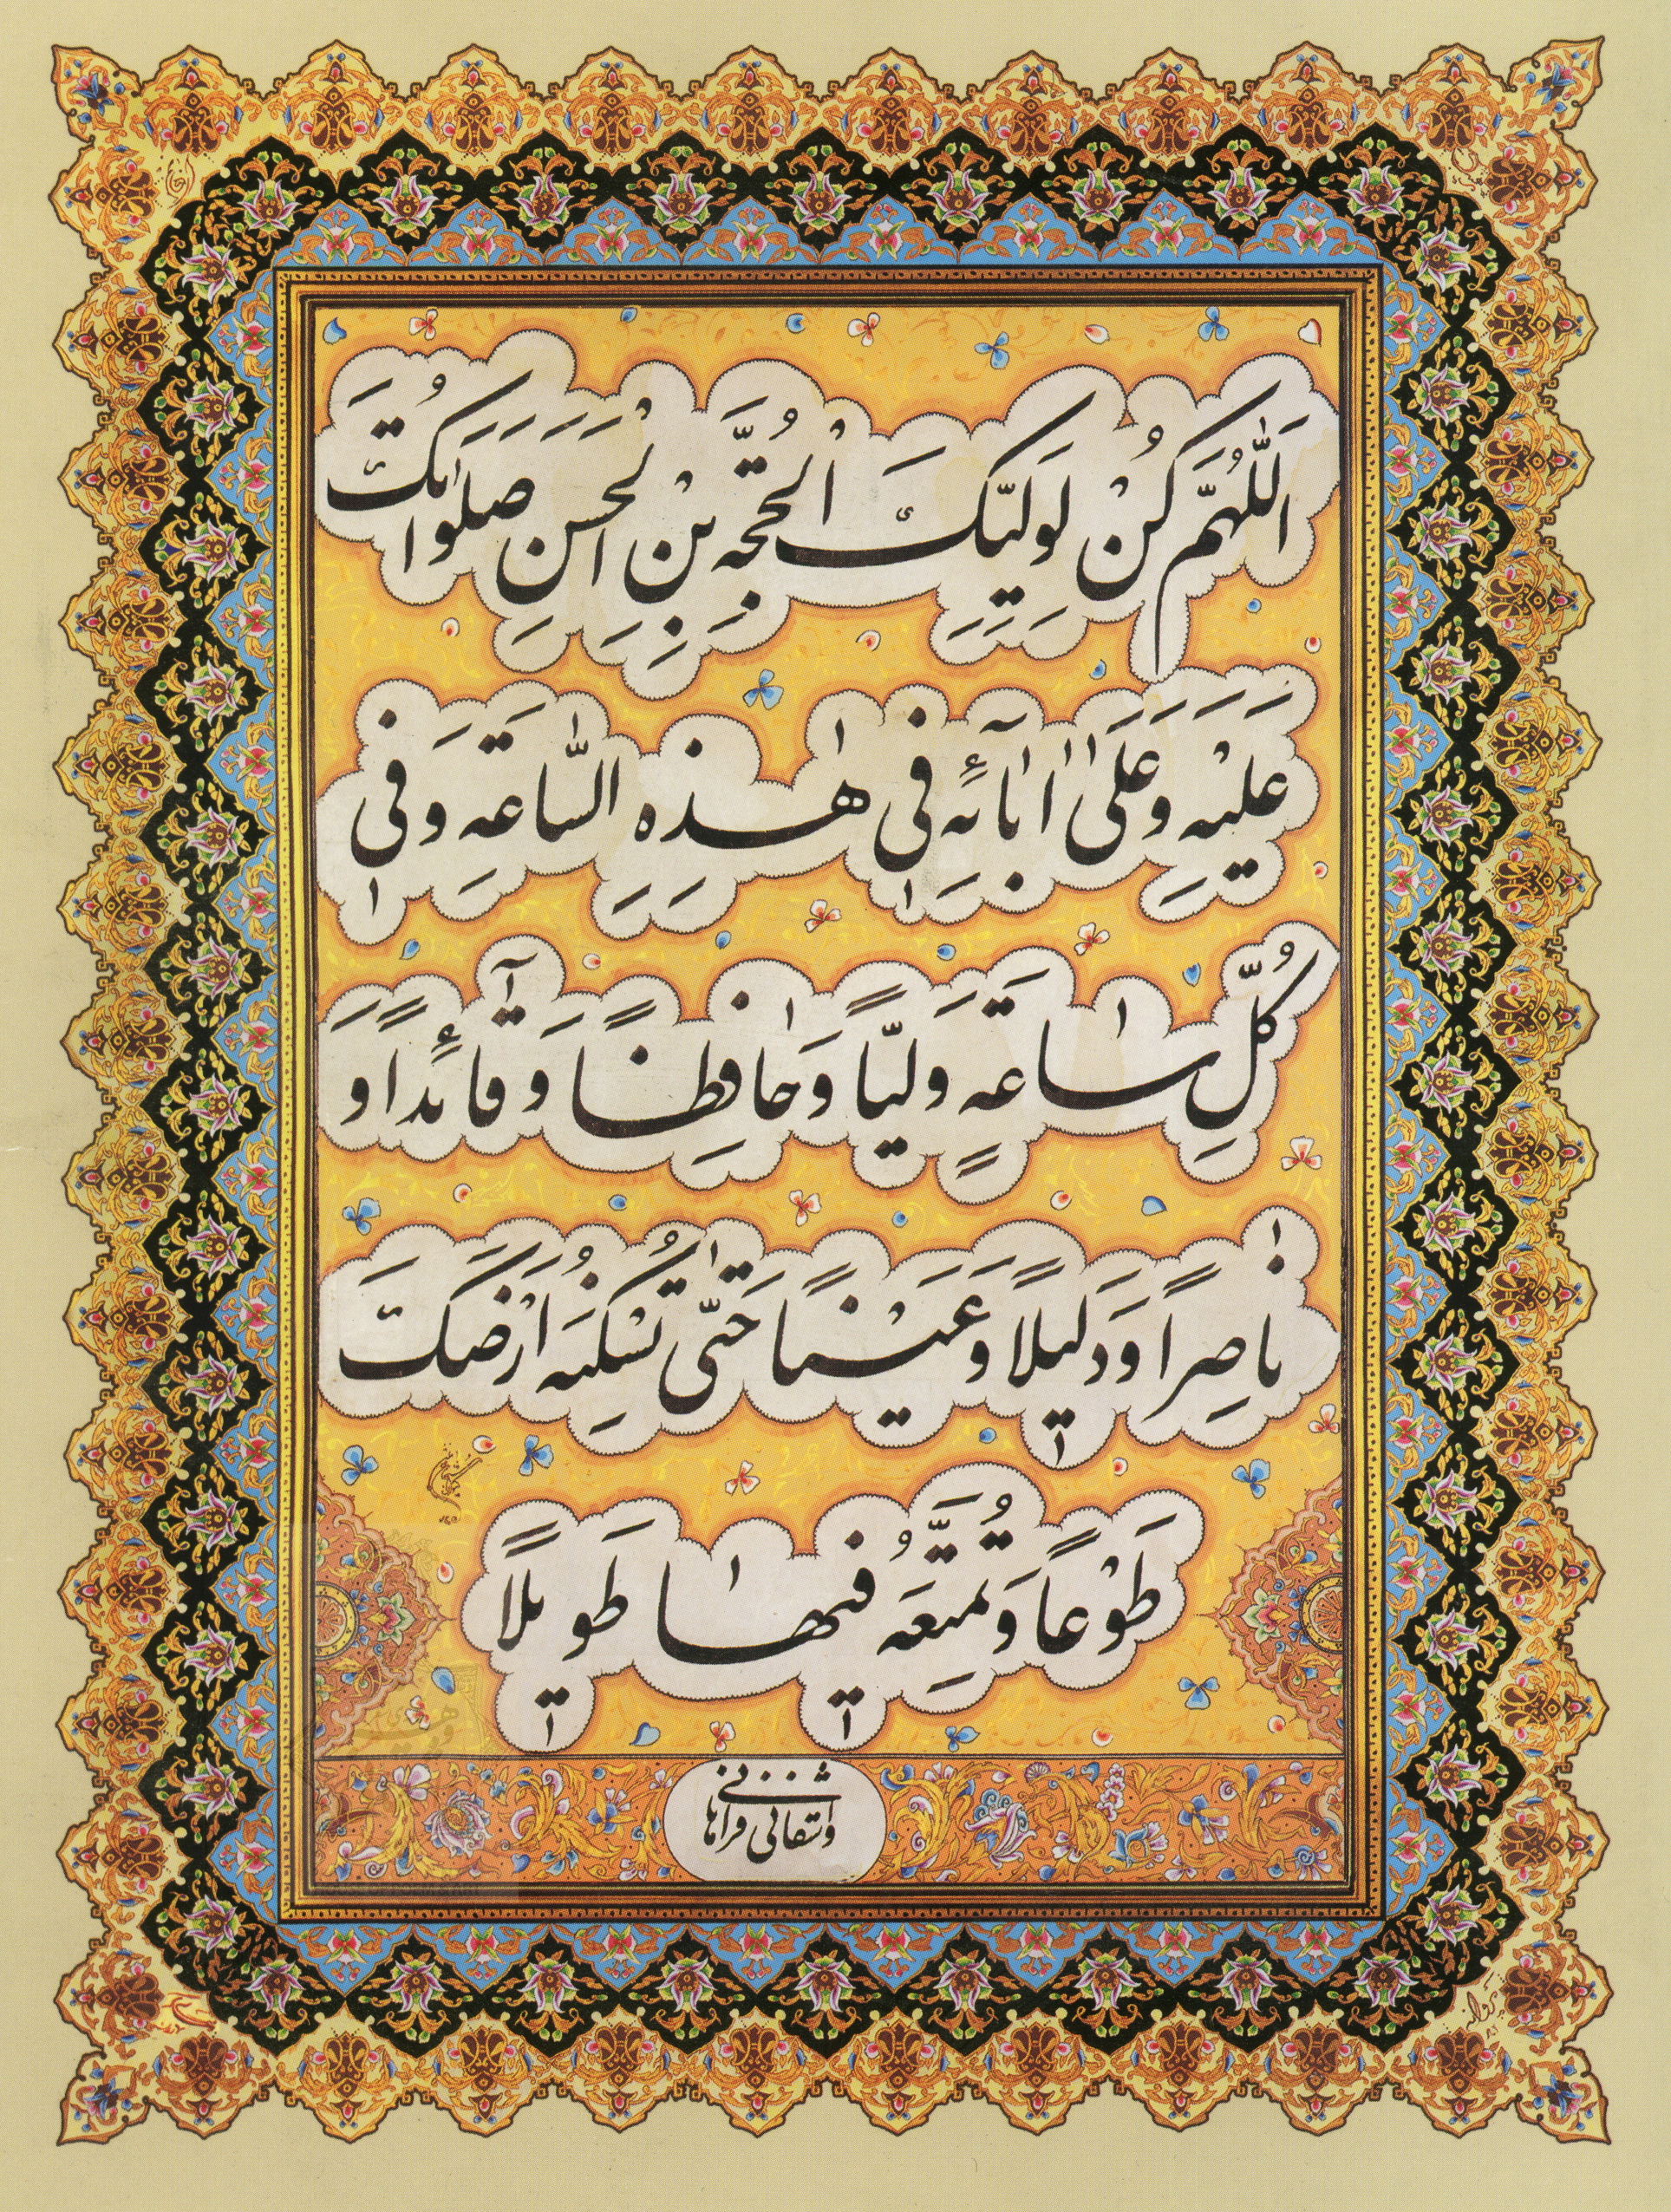 اَللّٰهُمَّ كُنْ لِوَلِيِّكَ الْحُجَّةِ بْنِ الْحَسَنِ صَلَواتُكَ
عَلَيْهِ وَعَلىٰ اٰبآئِهِ فى هٰذِهِ السّٰاعَةِ وَفى
كُلِّ سٰاعَةٍ وَلِيًّا وَحٰافِظًا وَقآئِدًا وَ
نٰاصِرًا وَدَليلًا وَعَيْنًا حَتّٰى تُسْكِنَهُ اَرْضَكَ
طَوْعًا وَتُمَتِّعَهُ فيهٰا طَويلًا